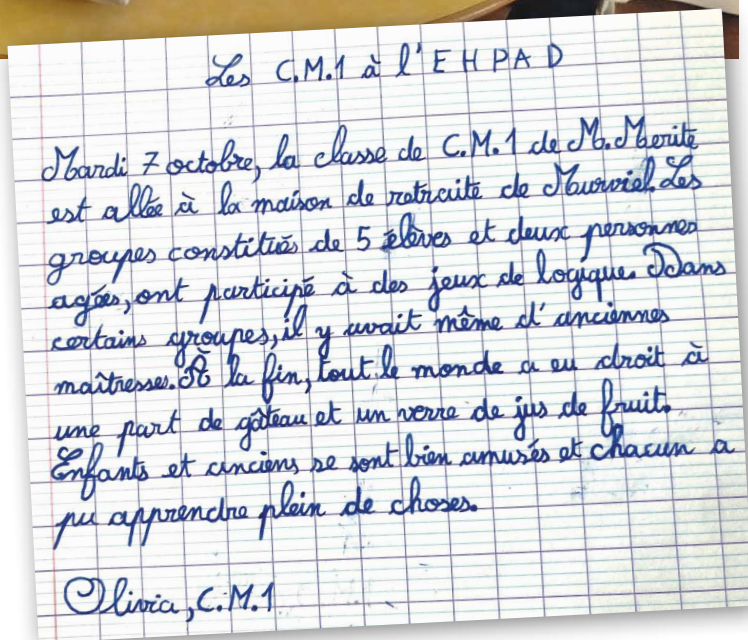 Les C.M.1 à l'EHPAD
Mardi 7 octobre, la classe de C.M.1 de M. Merite
est allée à la maison de retraite de Murviel. Les
groupes constitués de 5 élèves et deux personnes
agées, ont participé à des jeux de logique. Dans
certains groupes, il y avait même d'anciennes
maîtresses. À la fin, tout le monde a eu droit à
une part de gâteau et un verre de jus de fruit.
Enfants et anciens se sont bien amusés et chacun a
pu apprendre plein de choses.
Olivia, C.M.1